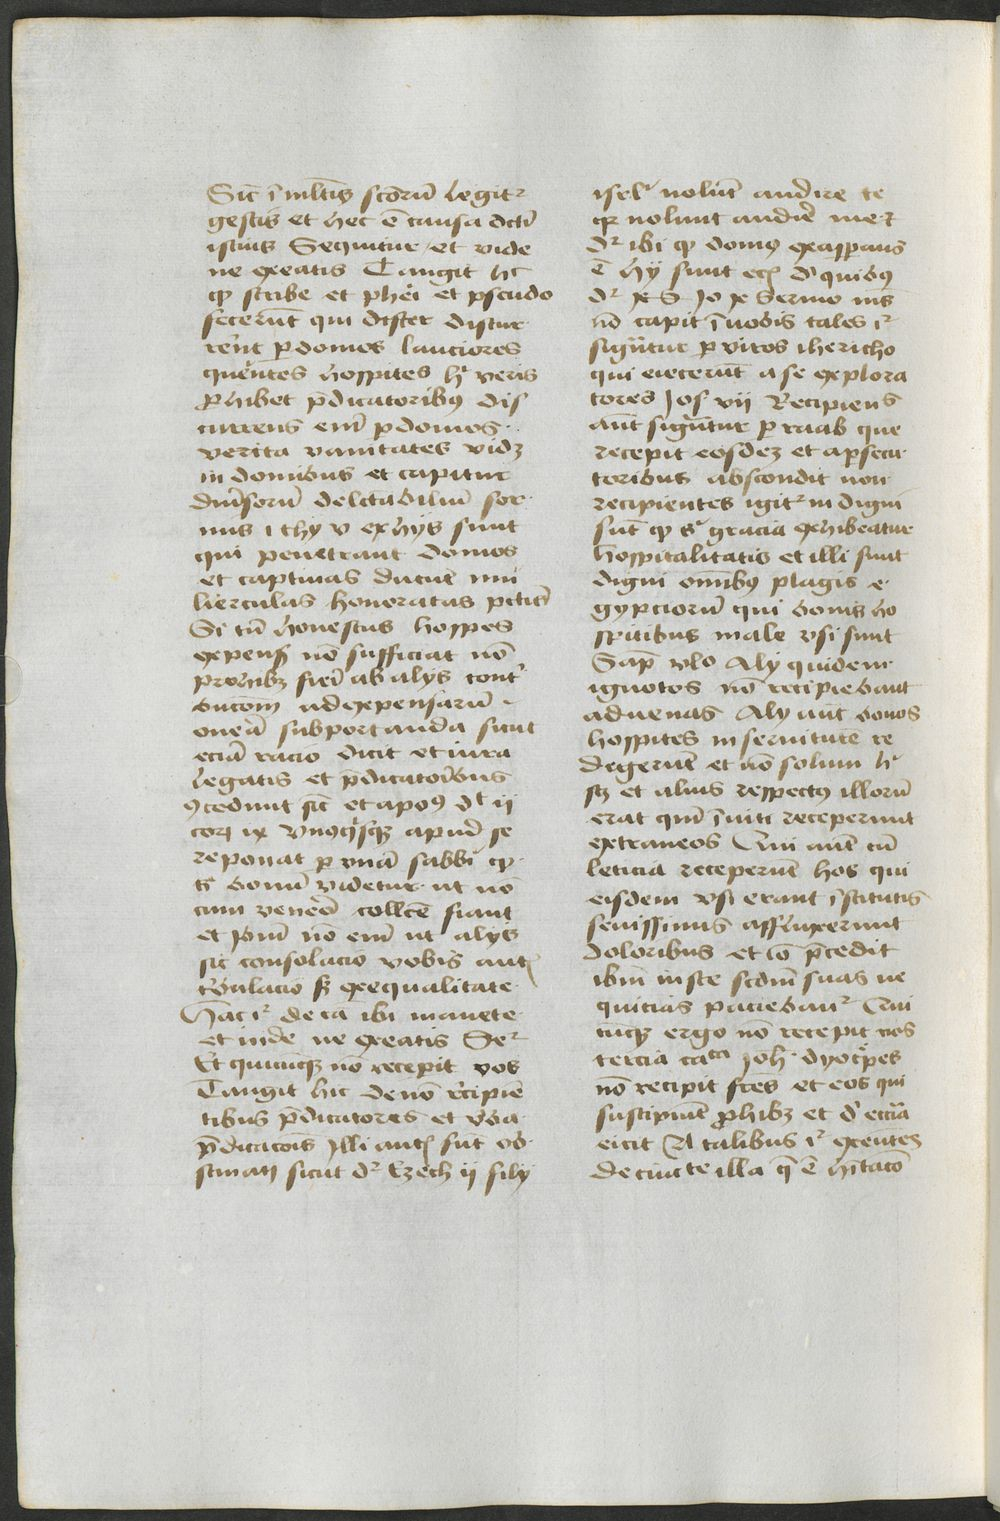 Sic̄ ī multis sc̄orū legitr
gestis et hec ē causa dc̄ti
istius Sequitur et vide
ne exeatis Tangit hc̄
ꝙ scribe et phēi et pseudo
fecerūt qui discur
rēnt ꝑ domos lauciores
querētes hospites hͥ veris
ꝓhibet p̄dicatoribꝰ dis
currens enī ꝑ domos
verita vanitates vidꝫ
in domibus et capitur
diuersorū delectabiliū for
mis i thy v ex hijs sunt
qui penetrant domos
et captiuas ducūt mu
lierculas honoratas pctīs
Si tn̄ honestus hospes
expensis nō sufficiat nō
prohibꝫ fieri ab alijs cont͛
bucōm ad expensarū
onera subportanda sicut
eciā racio dicit et iura
Legatis et p̄dicatoribus
ꝯcedunt sic̄ et apoꝰ dt ii
cor ix vnusqͥsqꝫ apud se
reponat ꝑ vnā sabbi ꝙ
ei bonū videtur ut nō
cum venero collc̄e fiant
et nō enī ut alijs
sit consolacio vobis aut
tͥbulacio sꝫ ex equalitate
Hac ir de ca ibi manete
et inde ne exeatis Ser
Et quicūqꝫ nō recepit vos
Tangit hic de nō recipiē
tibus p̄dicatores et vba
p̄dicacois Illi aut sūt ob
stinati sicut dr Ezech ii filij
isrl nolūt audire te
qr nolunt audire me et
dr ibi ꝙ domꝰ exasperans
ē hij sunt eciā d̓ quibꝰ
dr Jo Sermo meus
nō capit ī vobis tales ir
sigūtur ꝑ viros ihericho
qui eiecerūt a se explora
tores Jos vii Recipiens
aūt sigūtur ꝑ raab que
recepit eosdeꝫ et a ꝑsecu
toribus abscondit non
recipientes igitr indigni
sūt ꝙ eis gracia exhibeatur
hospitalitatis et illi sunt
digni om̄ibꝰ plagis e
gypciorū qui bonis ho
spitibus male vsi sunt
Sap̄ vlo Alij quidem
ignotos nō recipiebant
aduenas Alij aūt bonos
hospites in seruitutē re
degerūt et nō solum hͨ
sꝫ et alius respectꝰ illorū
erat qm̄ ī uiti receperunt
extraneos Qui autē cū
leticia receperūt hos qui
eisdem vsi erant ī stitutis
seuissimis afflixerunt
doloribus et io p̄cedit
ibīm iuste scd̄m suas ne
quicias paciebantr Qui
cūqꝫ ergo nō recepit vos
tercia ca Joh̄ dyotrepes
nō recipit frēs et eos qui
suscipiūt ꝓhibꝫ et d̓ eccīa
eicit A talibus ir exeuntes
de ciuitate illa q̄ ē hītacō